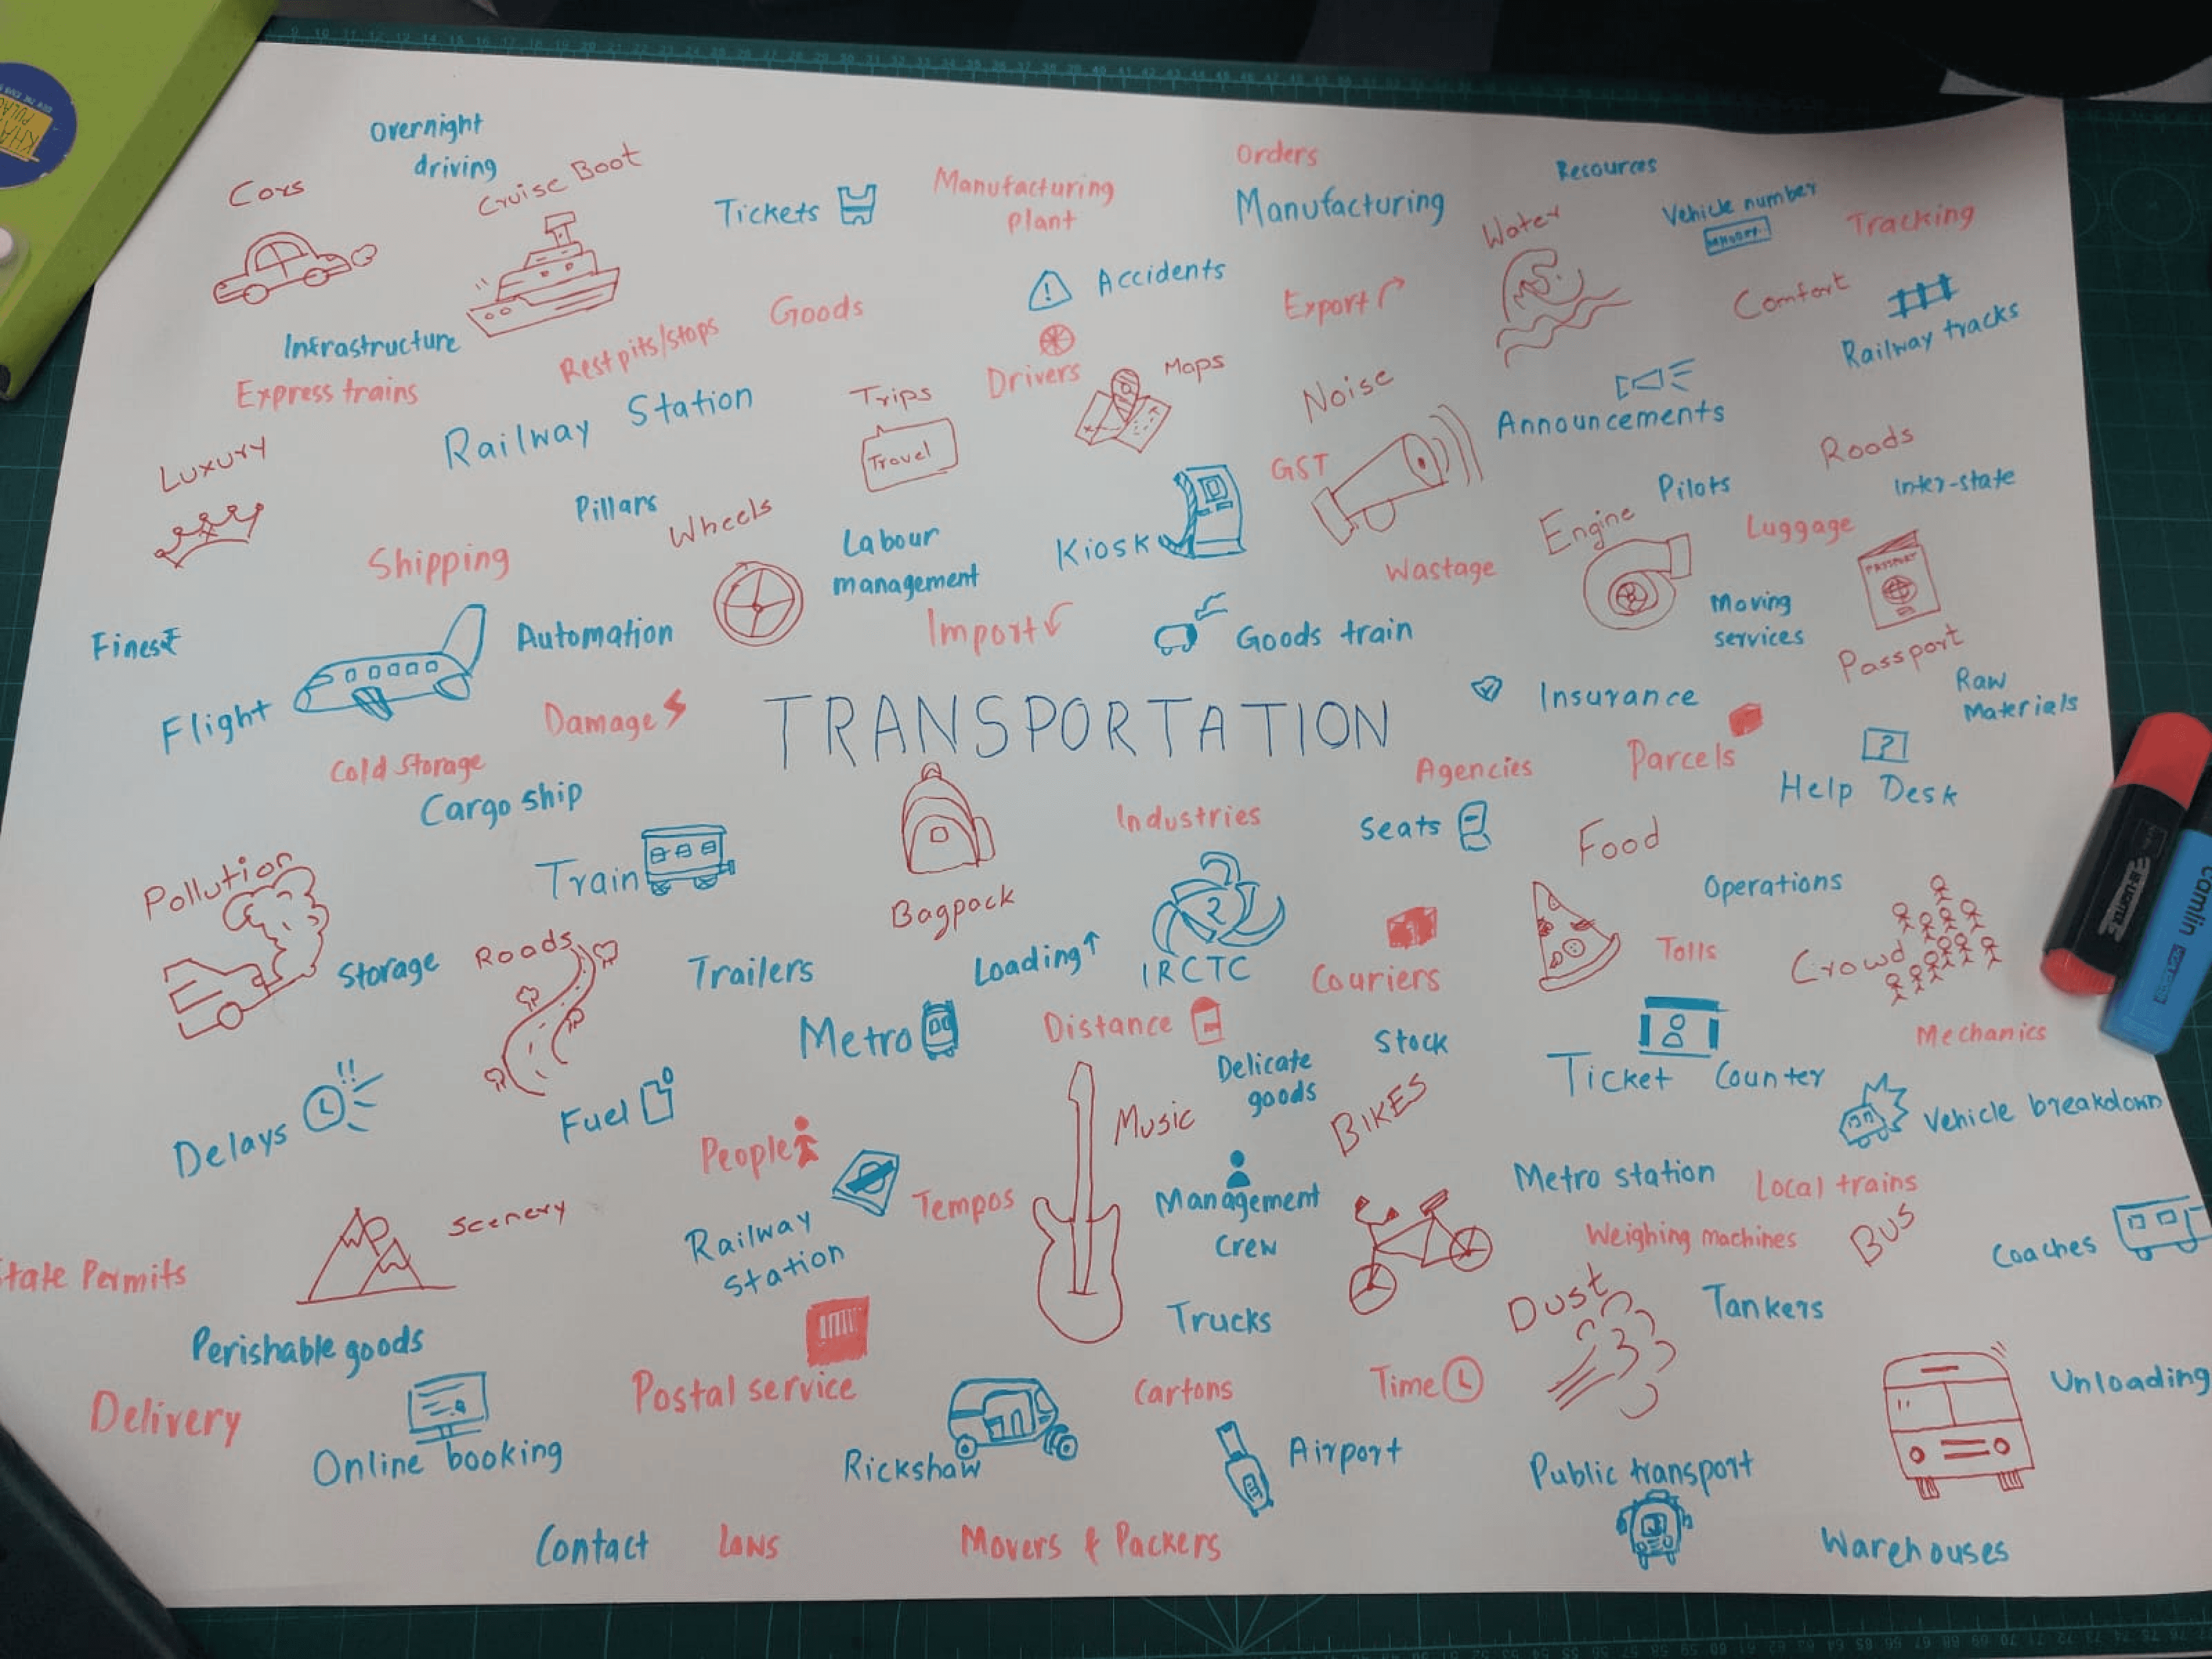 Overnight
driving
Cars
Cruise Boat
Tickets
Manufacturing
plant
Orders
Manufacturing
Resources
Water
Vehicle number
Tracking
Accidents
Export
Comfort
Railway tracks
Infrastructure
Express trains
Rest pits/stops
Goods
Drivers
Maps
Noise
Announcements
Luxury
Railway Station
Trips
Travel
GST
Roads
Inter-state
Pillars
Wheels
Labour
management
Kiosk
Engine
Pilots
Luggage
Shipping
Wastage
PASSPORT
Passport
Fines₹
Automation
Import
Goods train
Moving
services
Flight
Damage
TRANSPORTATION
Insurance
Raw
Materials
Cold storage
Cargo ship
Agencies
Parcels
?
Help Desk
Pollution
Train
Bagpack
Industries
Seats
Food
Operations
Storage
Roads
Trailers
Loading
IRCTC
Couriers
Tolls
Crowd
Metro
Distance
Delicate
goods
Stock
Ticket Counter
Mechanics
Delays
!!
Fuel
People
Music
BIKES
Vehicle breakdown
Scenery
Railway
station
Tempos
Management
Crew
Metro station
Local trains
Weighing machines
BUS
Coaches
State Permits
Perishable goods
Trucks
Dust
Tankers
Delivery
Online booking
Postal service
Rickshaw
Cartons
Time
Airport
Public transport
Unloading
Contact
Laws
Movers & Packers
Warehouses
camlin